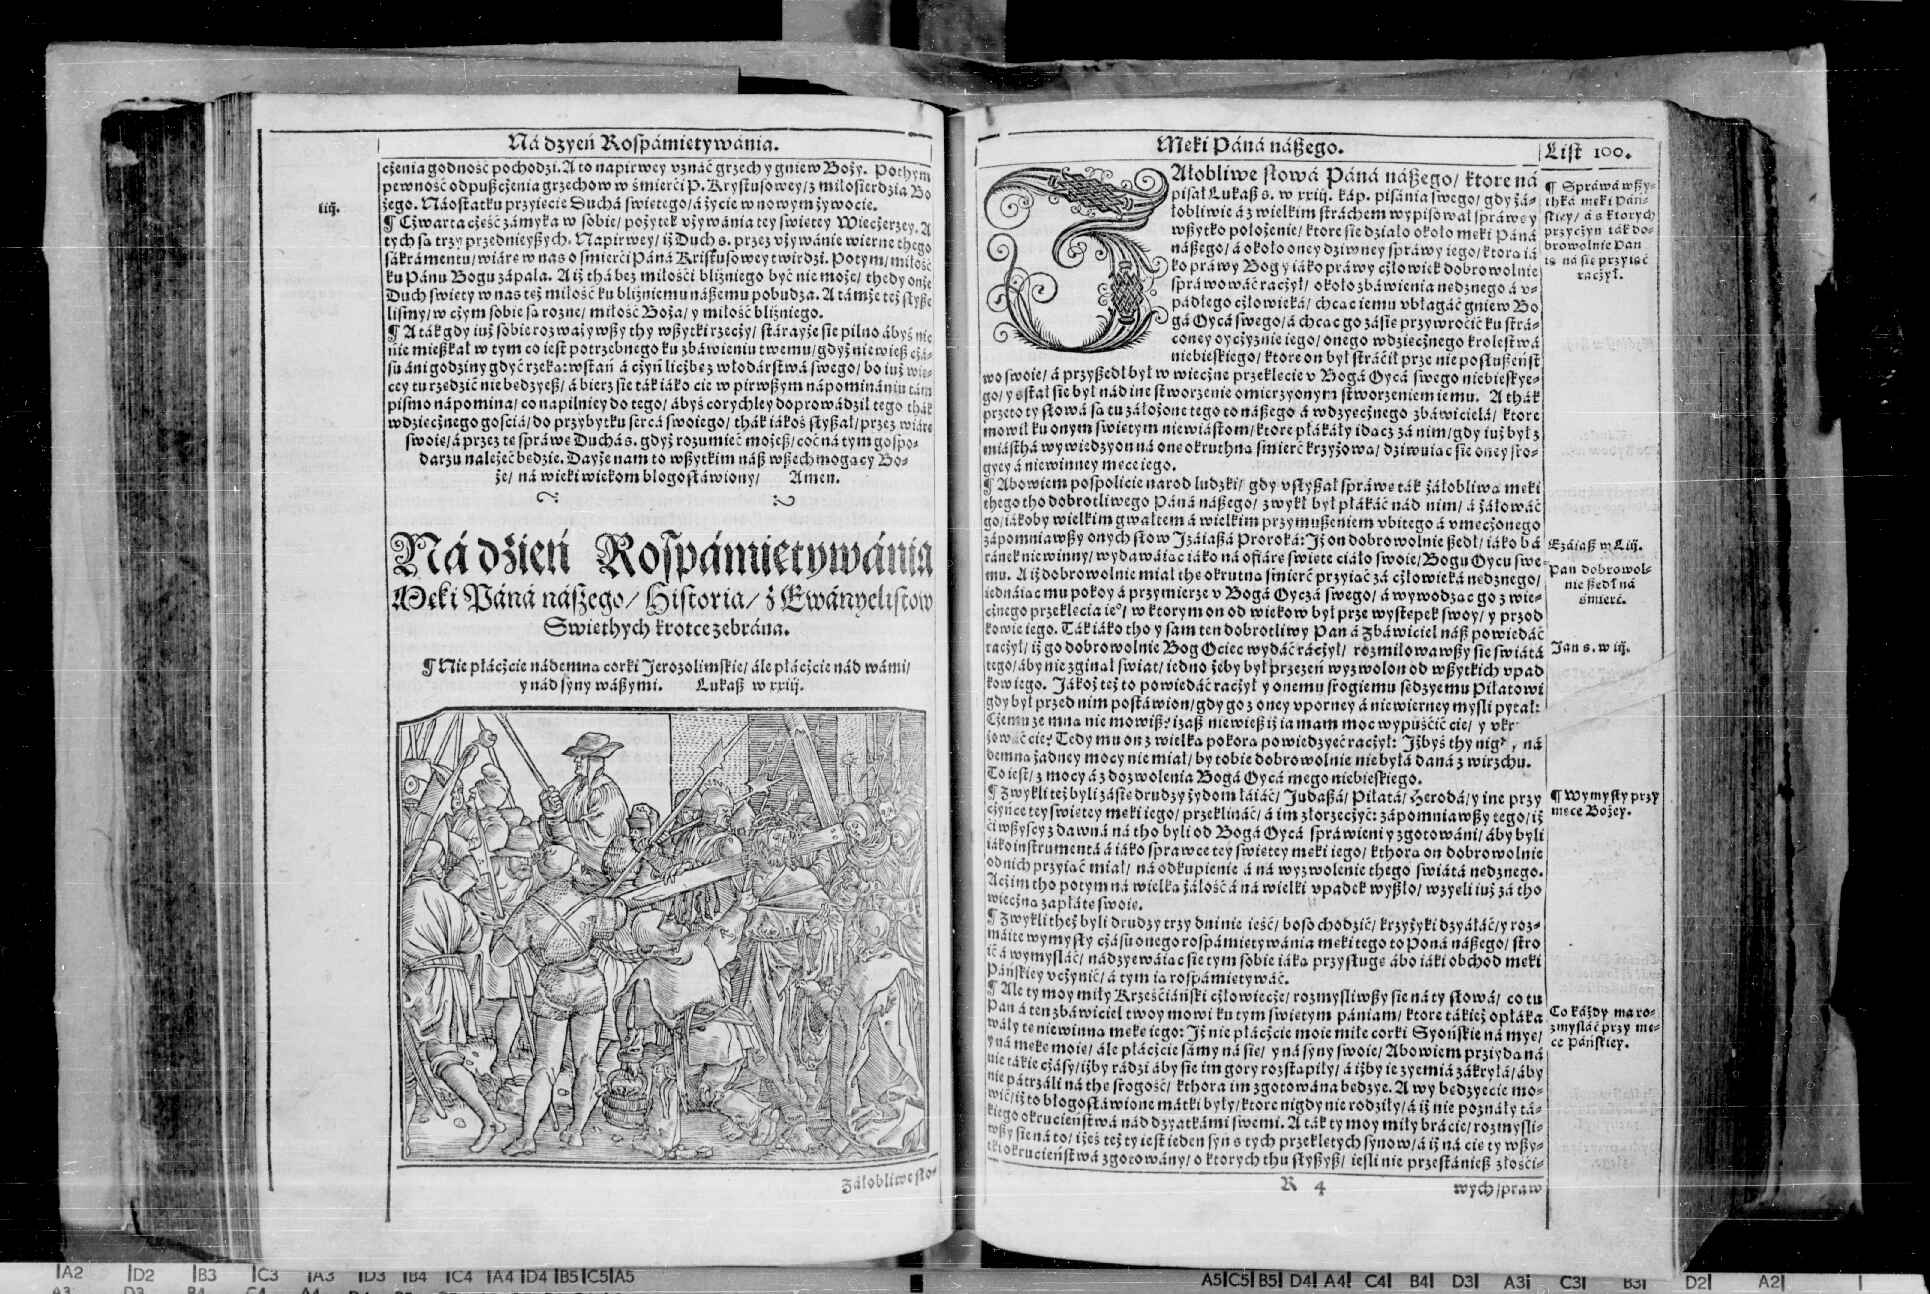 Ná dzyeń Rospámiętywánia.
cżenia godność pochodzi. A to napirwey vznáć grzech y gniew Boży. Pothym
pewność odpuszcżenia grzechow w śmierći P. Krystusowey/ z miłosierdzia Bo
żego. Náostátku przyięcie Duchá swiętego/ á życie w nowym żywocie.
liiij.
¶ Cżwarta cżęść zámyka w sobie/ pożytek vżywánia tey swiętey Wiecżerzey. A
tych są trzy przednieyszych. Napirwey/ iż Duch s. przez vżywánie wierne thego
sákrámentu/ wiárę w nas o śmierći Páná Kristusowey twirdzi. Potym/ miłość
ku Pánu Bogu zápala. A iż tha bez miłośći bliźniego być nie może/ thedy onże
Duch swięty w nas też miłość ku bliźniemu nászemu pobudza. A támże też słysze
lismy/ w cżym sobie są rozne/ miłość Boża/ y miłość bliźniego.
¶ A ták gdy iuż sobie rozważywszy thy wszytki rzecży/ stárayże się pilno ábyś nic
nie mieszkał w tym co iest potrzebnego ku zbáwieniu twemu/ gdyż nie wiesz cżá-
su áni godziny gdyć rzeką: wstań á cżyń licżbę z włodárstwá swego/ bo iuż wię-
cey tu rzędzić nie będzyesz/ á bierz się ták iáko cię w pirwszym nápominániu tám
pismo nápomina/ co napilniey do tego/ ábyś corychley doprowádził tego thák
wdzięcżnego gościá/ do przybytku sercá swoiego/ thák iákoś słyszał/ przez wiárę
swoię/ á przez tę spráwę Duchá s. gdyż rozumieć możesz/ coć ná tym gospo-
darzu náleżeć będzie. Dayże nam to wszytkim nász wszechmogący Bo-
że/ ná wieki wiekom błogosłáwiony/ Amen.
Ná dzień Rospámiętywánia
Męki Páná nászego/ Historia/ z Ewányelistow
Swiethych krotce zebrána.
¶ Nie płácżcie nádemną corki Jerozolimskie/ ále płácżcie nád wámi/
y nád syny wászymi. Lukasz w xxiij.
Załobliwe sło-
Męki Páná nászego.
List 100.
ZAłobliwe słowá Páná nászego/ ktore ná
pisał Lukasz s. w xxiij. káp. pisánia swego/ gdy żá-
łobliwie á z wielkim stráchem wypisował spráwę y
wszytko położenie/ ktore się dziáło około męki Páná
nászego/ á około oney dziwney spráwy iego/ ktorą iá
ko práwy Bog y iáko práwy cżłowiek dobrowolnie
spráwowáć racżył/ około zbáwienia nędznego á v-
pádłego cżłowieká/ chcąc iemu vbłagáć gniew Bo
gá Oycá swego/ á chcąc go zásię przywroćić ku strá-
coney oycżyznie iego/ onego wdzięcżnego krolestwá
niebieskiego/ ktore on był stráćił prze nie posłuszeńst
wo swoie/ á przyszedł był w wiecżne przeklęcie v Bogá Oycá swego niebieskye-
go/ y sstał się był nád inę stworzenie omierzyonym stworzeniem iemu. A thák
przeto ty słowá są tu záłożone tego to nászego á wdzyęcżnego zbáwicielá/ ktore
mowił ku onym swiętym niewiástom/ ktore płákáły idąc zá nim/ gdy iuż był z
miásthá wywiedzyon ná onę okruthną śmierć krzyżową/ dziwuiąc się oney sro-
giey á niewinney męce iego.
¶ Abowiem pospolicie narod ludzki/ gdy vsłyszał spráwę ták żáłobliwą męki
thego tho dobrotliwego Páná nászego/ zwykł był płákáć nád nim/ á żáłowáć
go/ iákoby wielkim gwałtem á wielkim przymuszeniem vbitego á vmęcżonego
zápomniawszy onych słow Izáiaszá Proroká: Iż on dobrowolnie szedł/ iáko bá
ránek niewinny/ wydawáiąc iáko ná ofiárę swięte ciáło swoie/ Bogu Oycu swe-
mu. A iż dobrowolnie miał thę okrutną śmierć przyiąć zá cżłowieká nędznego/
iednáiąc mu pokoy á przymierze v Bogá Oyczá swego/ á wywodząc go z wie-
cżnego przeklęcia ie°/ w ktorym on od wiekow był prze występek swoy/ y przod
kow iego. Ták iáko tho y sam ten dobrotliwy Pan á Zbáwiciel nász powiedáć
racżył/ iż go dobrowolnie Bog Ociec wydáć racżył/ rozmiłowawszy się swiátá
tego/ áby nie zginął swiát/ iedno żeby był przezeń wyzwolon od wszytkich vpad
kow iego. Jákoż też to powiedáć racżył y onemu srogiemu sędzyemu Piłatowi
gdy był przed nim postáwion/ gdy go z oney vporney á niewierney mysli pytał:
Cżemu ze mną nie mowisz? izasz nie wiesz iż ia mam moc wypuśćić cię/ y vkr
żowáć cię? Tedy mu on z wielką pokorą powiedzyeć racżył: Iżbyś thy nigdy ná
demną żadney mocy nie miał/ by tobie dobrowolnie nie byłá daná z wirzchu.
To iest/ z mocy á z dozwolenia Bogá Oycá mego niebieskiego.
¶ Zwykli też byli zásię drudzy żydom łáiáć/ Judaszá/ Piłatá/ Herodá/ y ine przy
cżyńce tey swiętey męki iego/ przeklináć/ á im złorzecżyć: zápomniawszy tego/ iż
ći wszyscy z dawná ná tho byli od Bogá Oycá spráwieni y zgotowáni/ áby byli
iáko instrumentá á iáko sprawce tey swiętey męki iego/ kthorą on dobrowolnie
od nich przyiąć miał/ ná odkupienie á ná wyzwolenie thego swiátá nędznego.
Acż im tho potym ná wielką żáłość á ná wielki vpadek wyszło/ wzyęli iuż zá tho
wiecżną zapłátę swoię.
¶ Zwykli theż byli drudzy trzy dni nie ieść/ boso chodzić/ krzyżyki dzyáłáć/ y roz-
máite wymysły cżásu onego rospámiętywánia męki tego to Páná nászego/ stro
ić á wymysláć/ nádzyewáiąc się tym sobie iáką przysługę ábo iáki obchod męki
Páńskiey vcżynić/ á tym ią rospámiętywáć.
¶ Ale ty moy miły Krześćiáński cżłowiecże/ rozmysliwszy się ná ty słowá/ co tu
Pan á ten zbáwiciel twoy mowi ku tym swiętym pániam/ ktore tákież opłáka
wáły tę niewinną mękę iego: Iż nie płácżcie moie miłe corki Syońskie ná mye/
y ná mękę moię/ ále płácżcie sámy ná się/ y ná syny swoie/ Abowiem prziydą ná
nie tákie cżásy/ iżby rádzi áby się im gory rozstąpiły/ á iżby ie zyemiá zákryłá/ áby
nie pátrzáli ná thę srogość/ kthora im zgotowána będzye. A wy będzyecie mo-
wić/ iż to błogosłáwione mátki były/ ktore nigdy nie rodziły/ á iż nie poznáły tá-
kiego okrucieństwá nád dzyatkámi swemi. A ták ty moy miły brácie/ rozmysli-
wszy się ná to/ iżeś też ty iest ieden syn s tych przeklętych synow/ á iż ná cię ty wszy-
tki okrucieństwá zgotowány/ o ktorych thu słyszysz/ iesli nie przestániesz złośći-
R 4
wych/ praw
¶ Spráwá wszy-
thká męki Páń-
skiey/ á s ktorych
przycżyn ták do-
browolnie Pan
ią ná się przyiąć
racżył.
Ezáiasz w Liij.
Pan dobrowol-
nie szedł ná
śmierć.
Jan s. w iij.
¶ Wymysły przy
męce Bożey.
Co káżdy ma ro-
zmysláć przy mę-
ce Páńskiey.